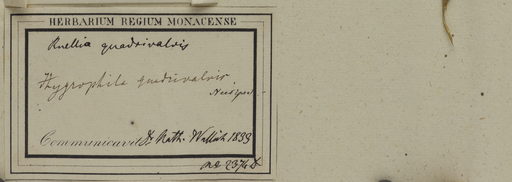 HERBARIUM REGIUM MONACENSE
Ruellia quadrivalvis
Hygrophila quadrivalvis
Nees ,
Communicavit Dr Nath. Wallich 1833
2374